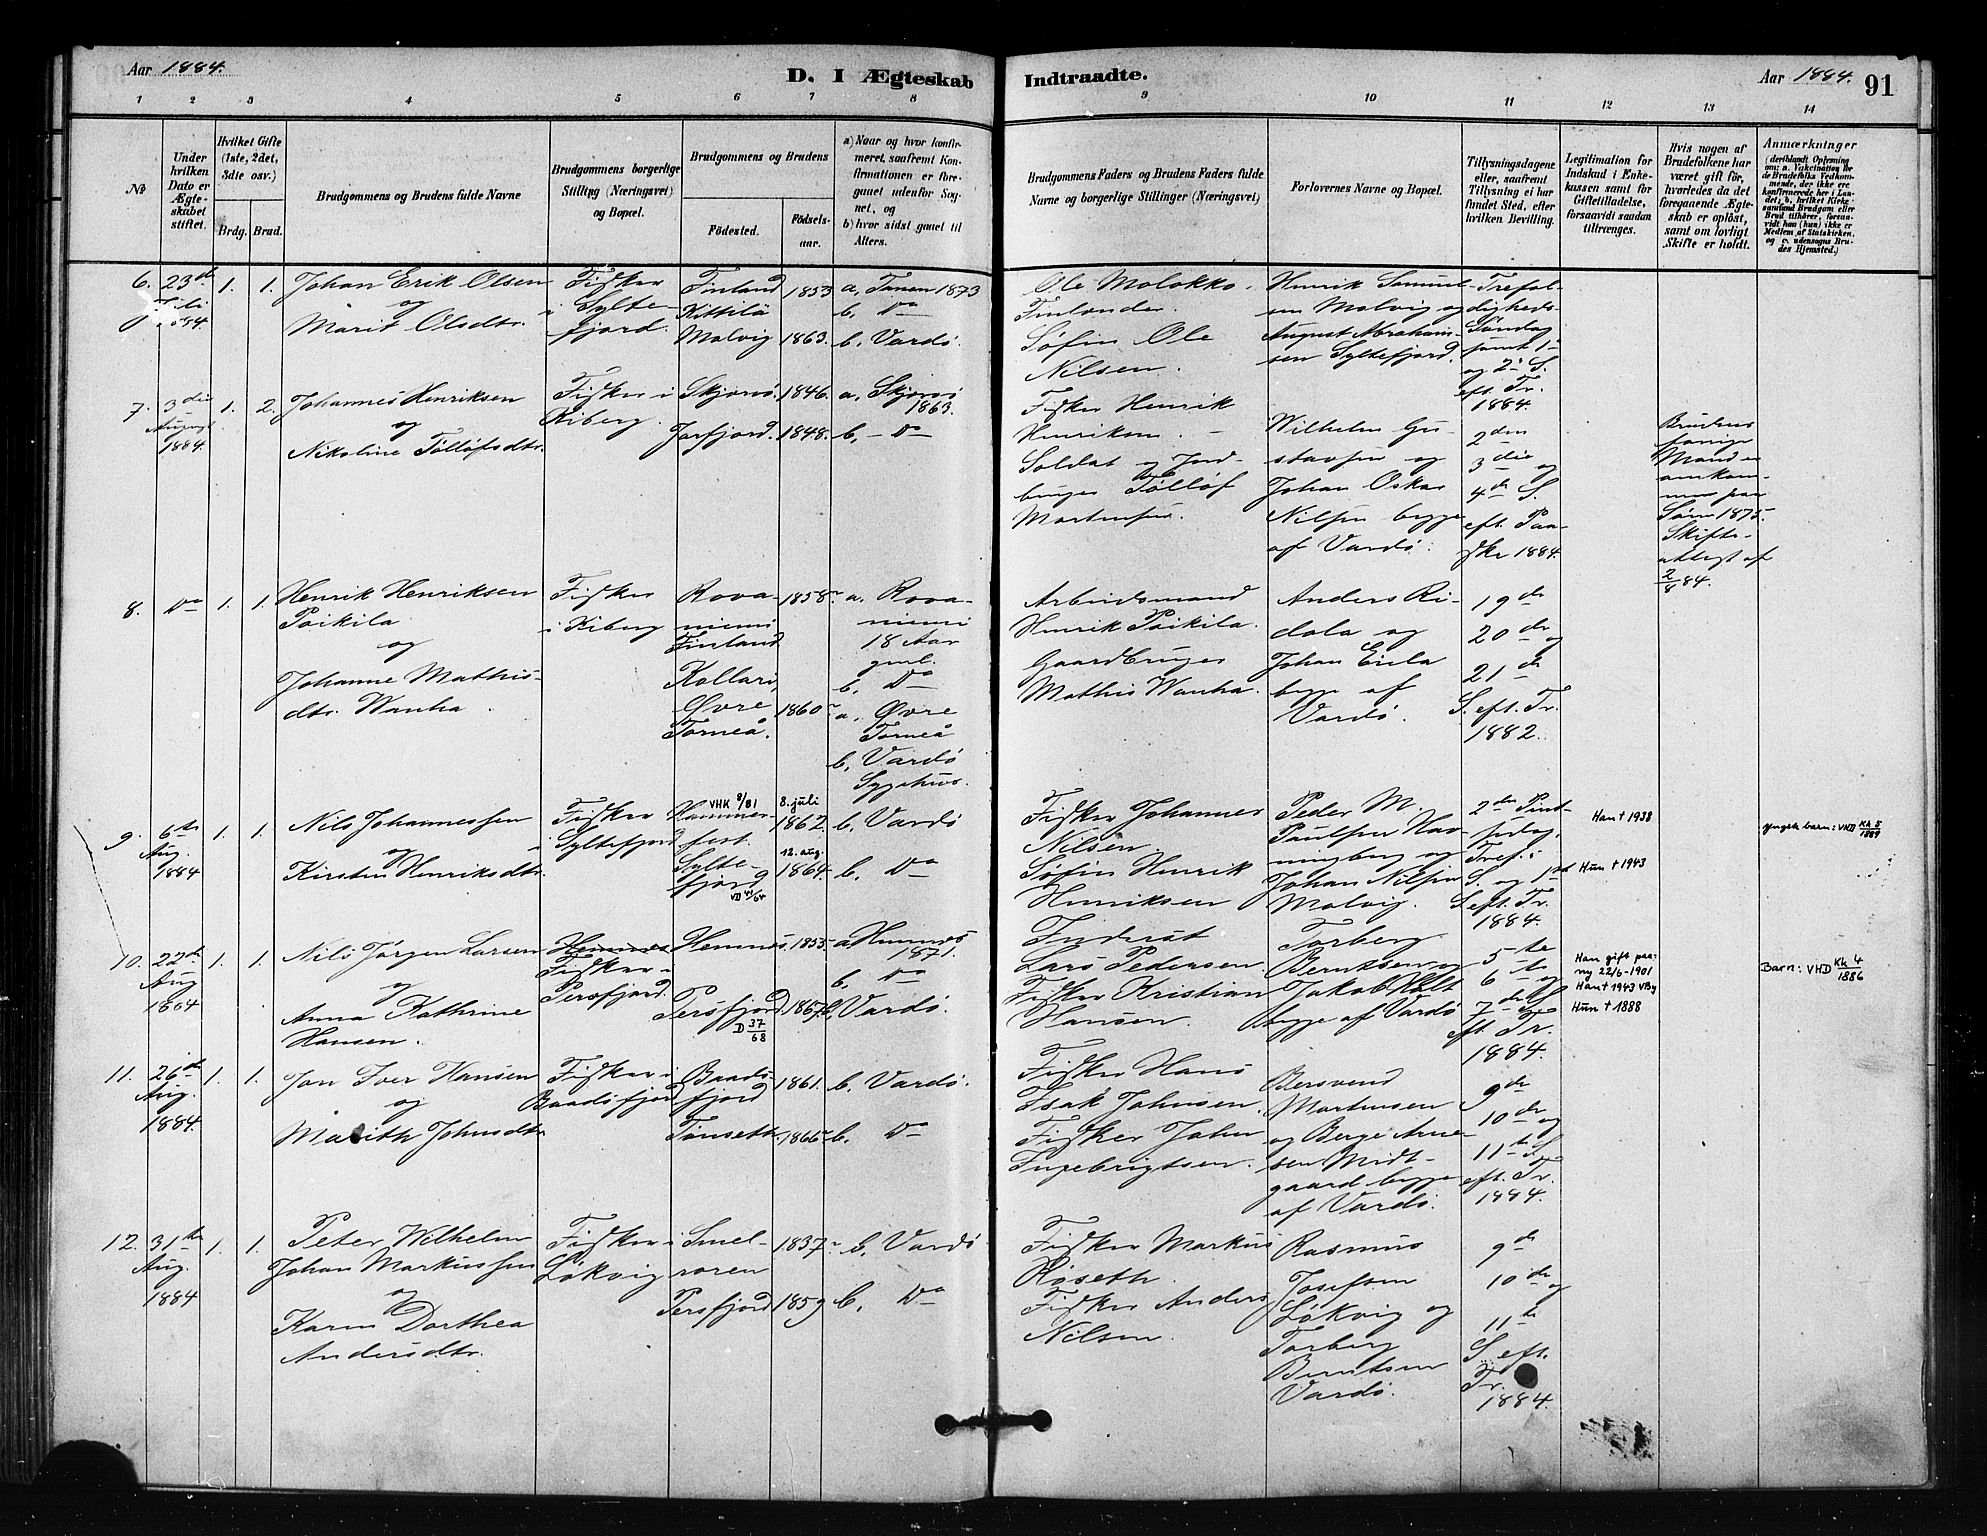 Aar 1884.
D. I Ægteskab
Indtraadte.
Aar 1884.
91
1 2 3 4 5 6 7 8
9 10 11 12 13 14
No
Under hvilken Dato er Ægteskabet stiftet.
Hvilket Gifte (1ste, 2det, 3die osv.)
Brdg. Brud.
Brudgommens og Brudens fulde Navne
Brudgommens borgerlige Stilling (Næringsvei) og Bopæl.
Brudgommens og Brudens
Födested.
Födsels-aar.
a) Naar og hvor konfirmeret, saafremt Konfirmationen er foregaaet udenfor Sognet, og
b) hvor sidst gaaet til Alters.
Brudgommens Faders og Brudens Faders fulde Navne og borgerlige Stillinger (Næringsvei)
Forlovernes Navne og Bopæl.
Tillysningsdagene eller, saafremt Tillysning ei har fundet Sted, efter hvilken Bevilling.
Legitimation for Indskud i Enkekassen samt for Giftetilladelse, forsaavidt saadan tiltrænges.
Hvis nogen af Brudefolkene har været gift för, hvorledes da det foregaaende Ægteskab er oplöst, samt om lovligt Skifte er holdt.
Anmærkninger
6. 23de Juli 1884. 1. 1.
Johan Erik Olsen
og
Marit Olsdtr.
Fisker
i Sylte-
fjord.
Finland
Kittilä
Molvig
1853
1863.
a, Tanen 1873
b. Do
b. Vardö.
Ole Molokko.
Finlænder.
Söfin Ole
Nilsen.
Henrik Samuel-
sen Molvig og
August Abraham-
sen Syltefjord.
Trefol-
digheds-
Söndag
samt 1ste
og 2de S.
eft. Tr.
1884.
7. 3die August 1884. 1. 2.
Johannes Henriksen
og
Nikoline Tollöfsdtr.
Fisker i
Kiberg.
Skjervö.
Jarfjord.
1846.
1848.
a. Skjervö
1863.
b. - Do
Fisker Henrik
Henriksen.
Soldat og Jord-
bruger Tollöf
Mortensen.
Wilhelm Gu-
stavsen og
Johan Oskar
Nilsen begge
af Vardö.
2den
3die og
4de S.
eft. Paa-
ske 1884.
Brudens
forrige
Mand er
omkom-
men paa
Söen 1875.
Skifte-
attest af
2/8 84.
8. Do 1. 1.
Henrik Henriksen
Poikila
og
Johanne Mathis-
dtr. Wanha.
Fisker
i Kiberg
Rova-
niemi
Finland
Kollari,
Övre
Torneå.
1858
1860
a. Rova-
niemi
18 Aar
gml.
b. Do
a. Øvre
Torneå
b. Vardö
Sygehus.
Arbeidsmand
Henrik Poikila.
Gaardbruger
Mathis Wanha.
Anders Ri-
dola og
Johan Eiela
begge af
Vardö.
19de
20de og
21de
S. eft. Tr.
1882.
9. 6te Aug. 1884 1. 1.
Nils Johannessen
og
Kirsten Henriksdtr.
Fisker
i Syltefjord
Hammer-
fest.
VHK 8/81
Sylte-
fjord
VD 44/64
8. juli
1862.
12. aug.
1864.
b. Vardö
b. Do
Fisker Johannes
Nilsen.
Söfin Henrik
Henriksen
Peder M.
Paulsen Hav-
ningberg og
Johan Nilsen
Molvig.
2den Pint-
sedag,
Tref.
S. og 1ste
S. eft. Tr.
1884.
Han † 1938
Hun † 1943
Yngste barn: VHD Kk 5/1889
10. 22de Aug 1884 1. 1.
Nils Jörgen Larsen
og
Anna Kathrine
Hansen.
Hemnes
Fisker i
Persfjord.
Hemnes.
Persfjord.
D 37/68
1855.
1867.
a Hemnes
1871.
b. Do
b. Vardö.
Inderst
Lars Pedersen
Fisker Kristian
Hansen.
Torberg
Berntsen og
Jakob Holt
begge af Vardö
5te
6te og
7de S.
eft. Tr.
1884.
Han gift paa-
ny 22/6-1901
Han † 1943 VBy
Hun † 1888
Barn: VHD Kk 4/1886
11. 26de Aug. 1884. 1. 1.
Jon Iver Hansen
og
Marith Johnsdtr.
Fisker i
Baadsfjord
Baads-
fjord
Tönseth.
1861.
1866
b. Vardö.
b. Do
Fisker Hans
Isak Johnsen.
Fisker John
Ingebrigtsen.
Bersvend
Mortensen
og Berge Arne-
sen Midt-
gaard begge
af Vardö.
9de
10de og
11te S
eft. Tr.
1884.
12. 31te Aug. 1884 1. 1.
Peter Wilhelm
Johan Markussen
og
Karen Dorthea
Andersdtr.
Fisker i
Lökvig
Smel-
roren
Persfjord
1837
1859
b. Vardö
b. Do
Fisker Markus
Röseth.
Fisker Anders
Nilsen.
Rasmus
Josefsen
Lökvig og
Torberg
Berntsen
Vardö.
9de
10de og
11te
S. eft.
Tr.
1884.